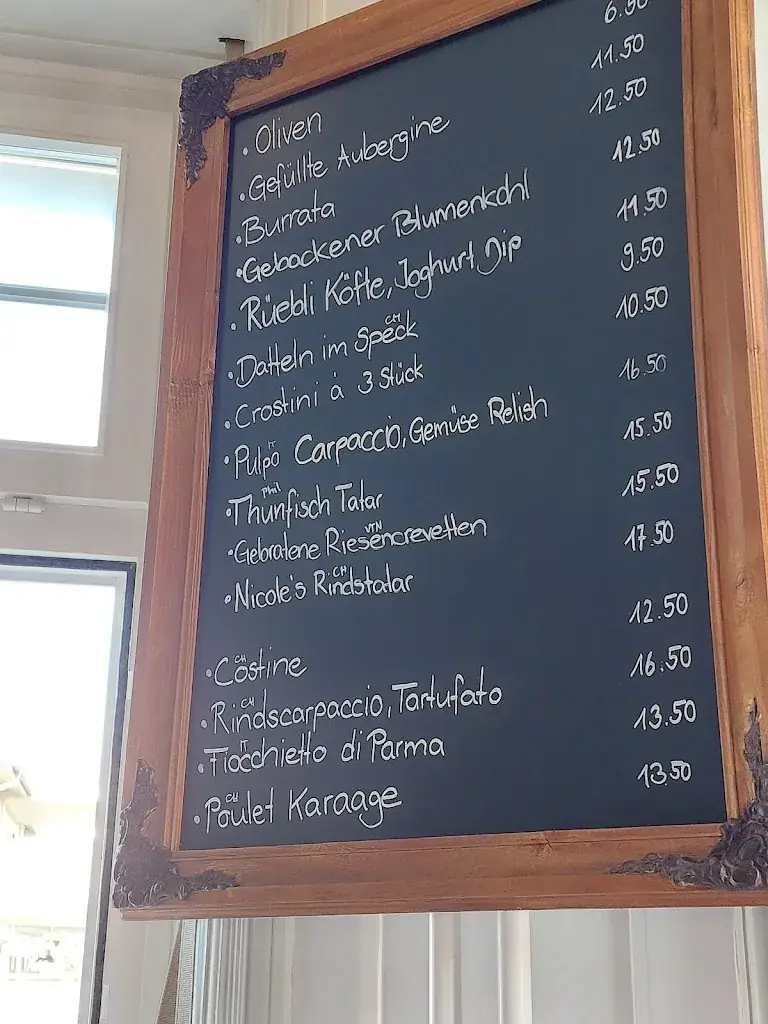 • Oliven 6.50
• Gefüllte Aubergine 11.50
• Burrata 12.50
• Gebackener Blumenkohl 12.50
• Rüebli Köfte, Joghurt Dip 11.50
CH
• Datteln im Speck 9.50
• Crostini à 3 Stück 10.50
IT
• Pulpo Carpaccio, Gemüse Relish 16.50
Phil
• Thunfisch Tatar 15.50
VTN
• Gebratene Riesencrevetten 15.50
CH
• Nicole's Rindstatar 17.50
CH
• Costine 12.50
CH
• Rindscarpaccio, Tartufato 16.50
IT
• Fiocchietto di Parma 13.50
CH
• Poulet Karaage 13.50